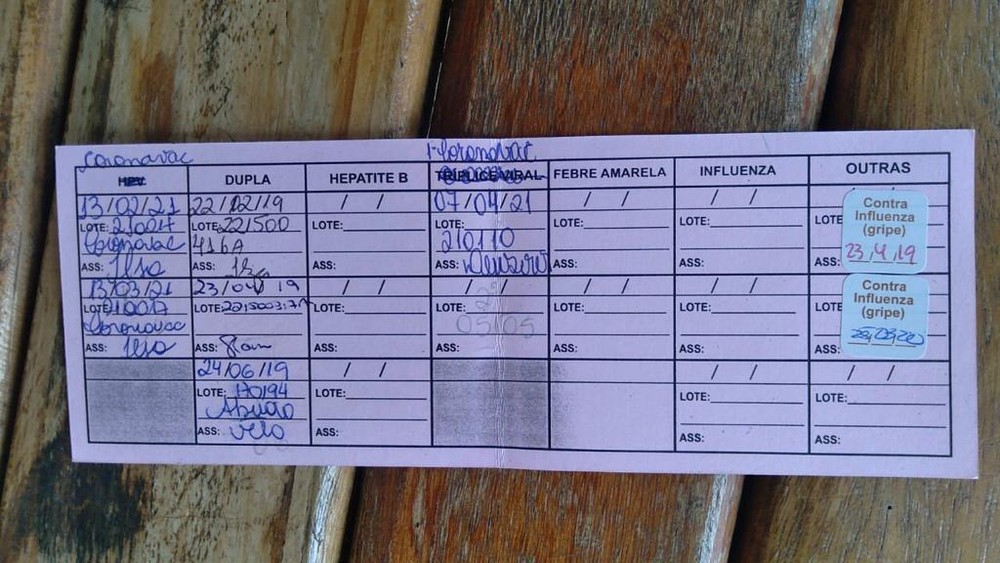 Coronavac
Coronavac
HPV
DUPLA
HEPATITE B
TRÍPLICE VIRAL
FEBRE AMARELA
INFLUENZA
OUTRAS
13/02/21
22/02/19
/ /
07/04/21
/ /
/ /
LOTE:
LOTE: 221500
LOTE:
LOTE:
LOTE:
LOTE:
LOTE
Contra
Influenza
(gripe)
23.4.19
Coronavac
416A
210110
ASS:
ASS:
ASS:
ASS:
ASS:
ASS:
ASS:
13/03/21
23/04/19
/ /
/ /
/ /
/ /
LOTE:
LOTE:
LOTE:
LOTE:
05/05
LOTE:
LOTE:
LOTE
Contra
Influenza
(gripe)
Coronavac
ASS:
ASS:
ASS:
ASS:
ASS:
ASS:
ASS:
24/06/19
/ /
/ /
/ /
LOTE: 170194
LOTE:
LOTE:
LOTE:
ASS:
ASS:
ASS:
ASS: